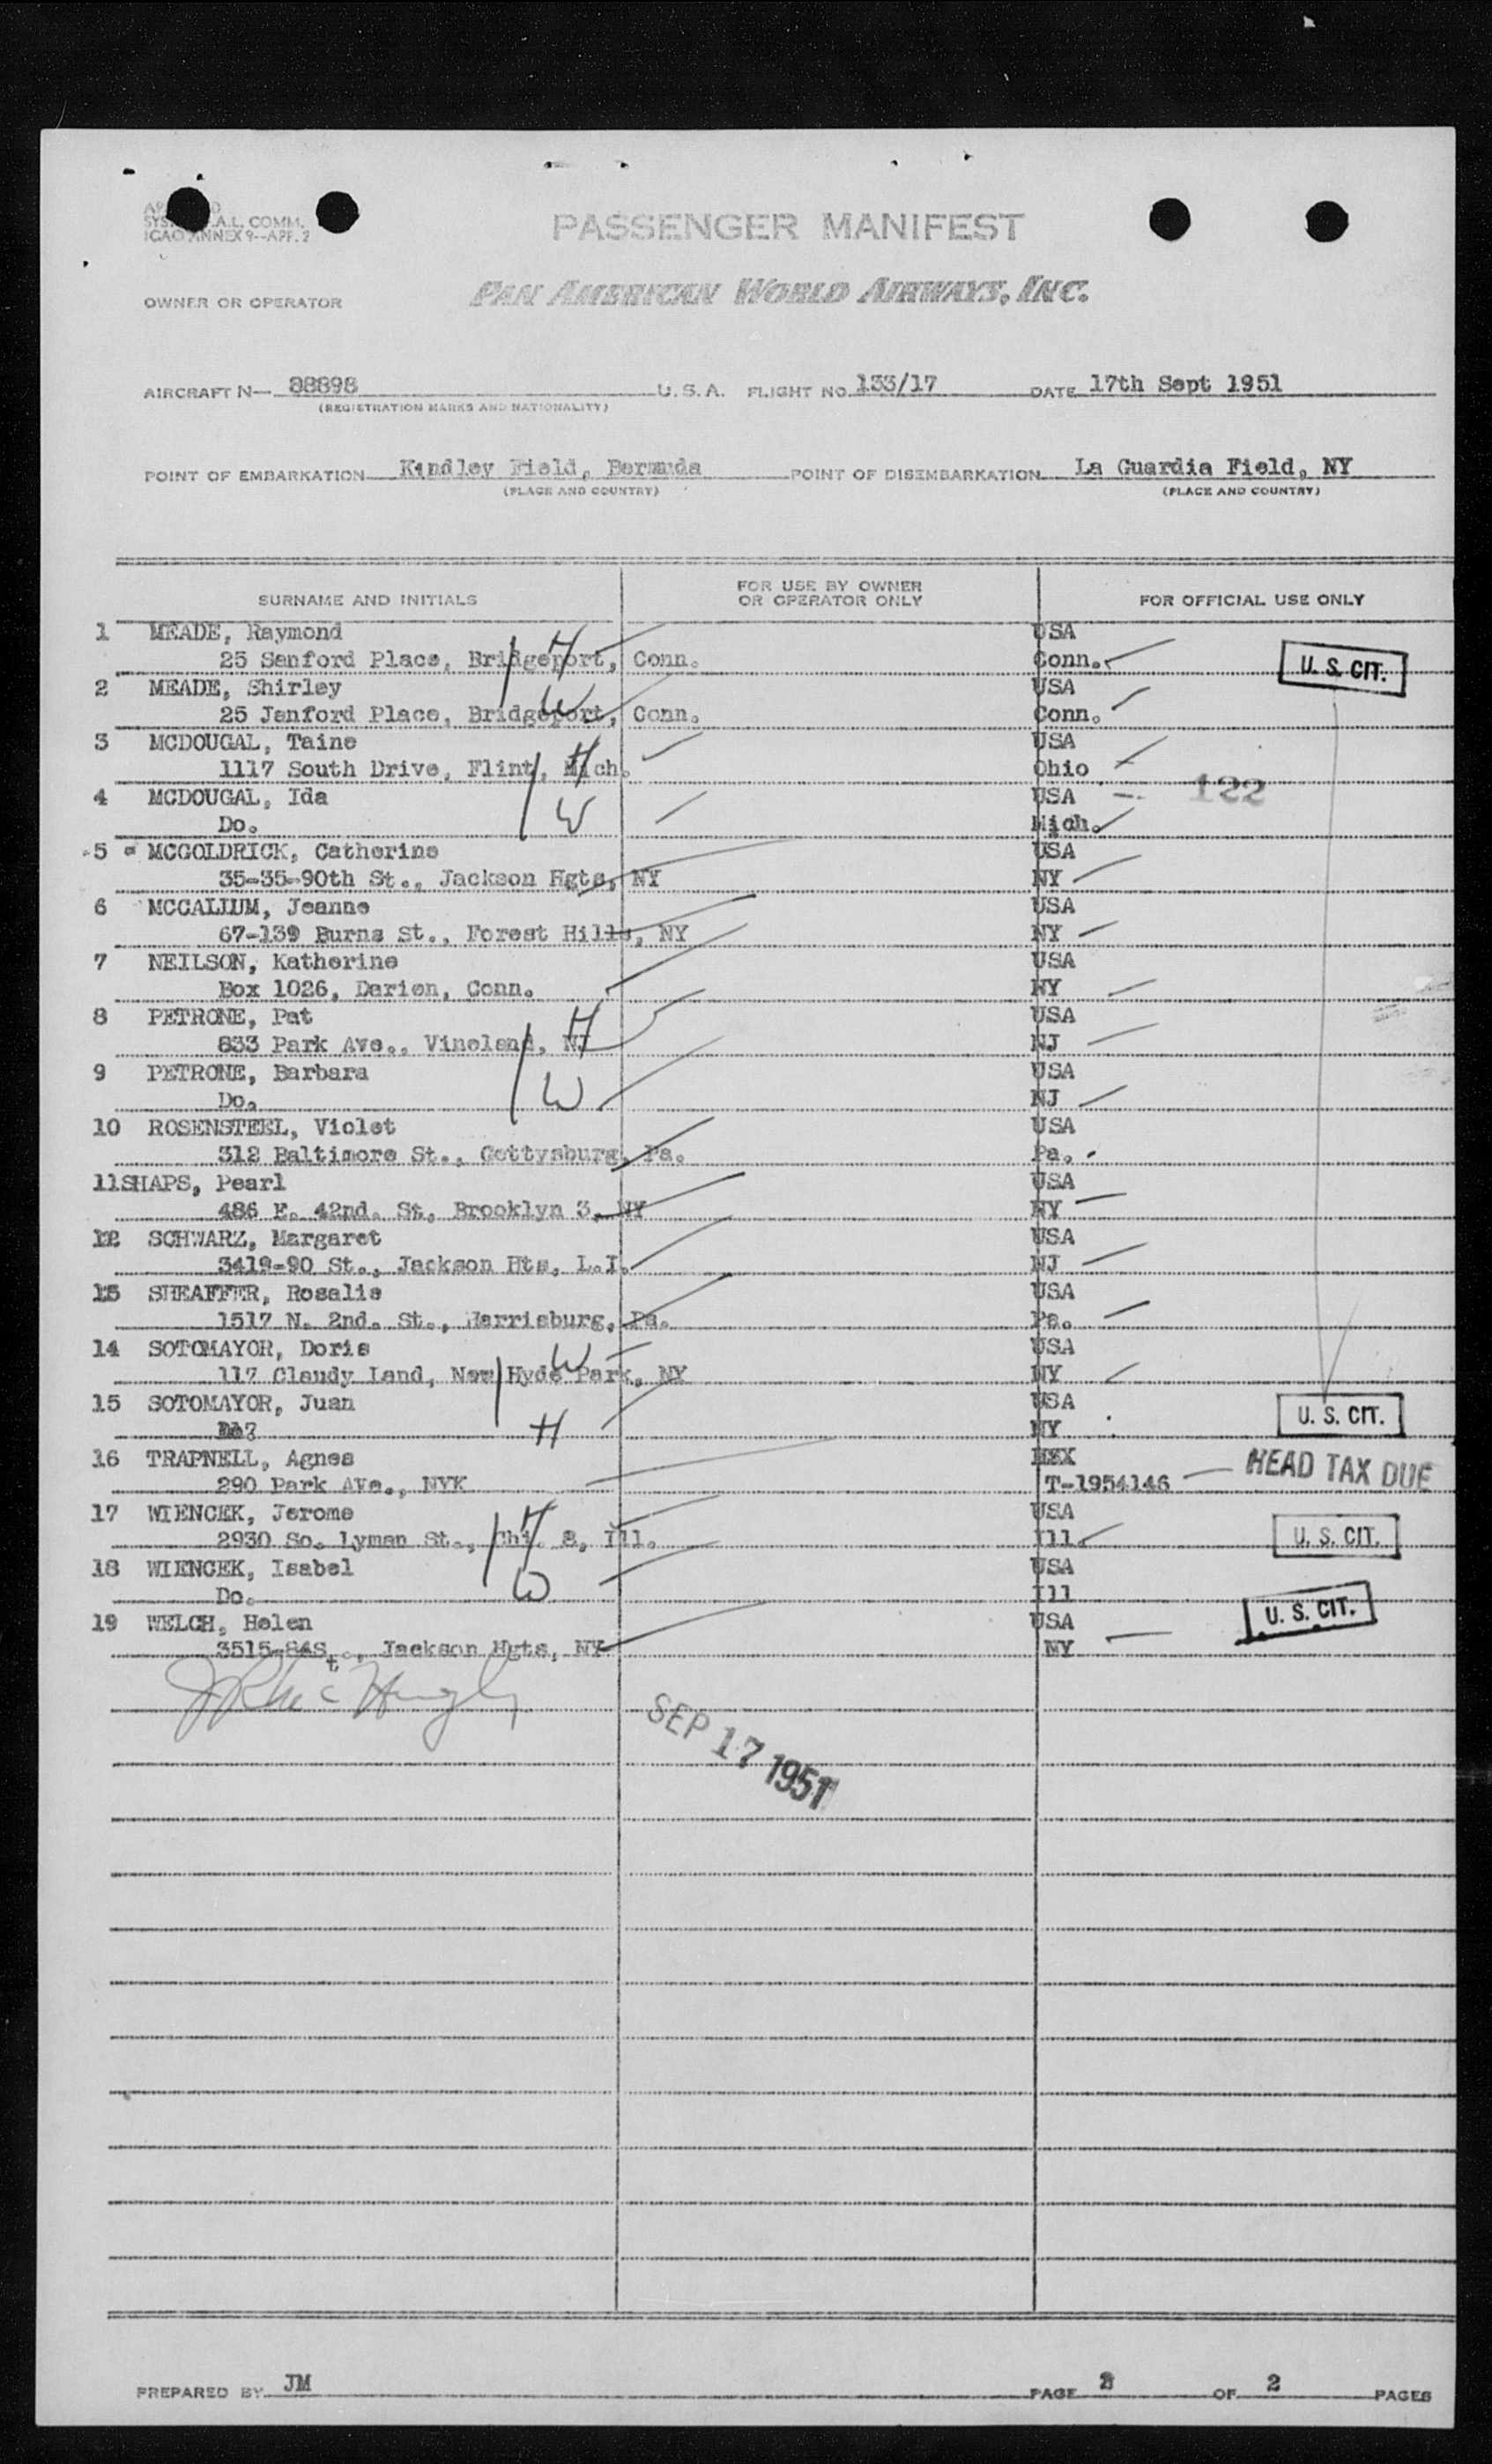 PASSENGER MANIFEST
A.L. COMM.
ICAO ANNEX 9--APP. 2
OWNER OR OPERATOR PAN AMERICAN WORLD AIRWAYS, INC.
AIRCRAFT N— 88898 U.S.A. FLIGHT NO. 133/17 DATE 17th Sept 1951
(REGISTRATION MARKS AND NATIONALITY)
POINT OF EMBARKATION Kindley Field, Bermuda POINT OF DISEMBARKATION La Guardia Field, NY
(PLACE AND COUNTRY) (PLACE AND COUNTRY)
SURNAME AND INITIALS FOR USE BY OWNER OR OPERATOR ONLY FOR OFFICIAL USE ONLY
1 MEADE, Raymond H USA
25 Sanford Place, Bridgeport, Conn. Conn. U. S. CIT.
2 MEADE, Shirley W USA
25 Janford Place, Bridgeport, Conn. Conn.
3 MCDOUGAL, Taine H USA
1117 South Drive, Flint, Mich. Ohio
4 MCDOUGAL, Ida W USA 122
Do. Mich.
5 MCGOLDRICK, Catherine USA
35-35-90th St., Jackson Hgts, NY NY
6 MCCALIUM, Jeanne USA
67-139 Burns St., Forest Hills, NY NY
7 NEILSON, Katherine USA
Box 1026, Darien, Conn. NY
8 PETRONE, Pat H USA
833 Park Ave., Vineland, NJ NJ
9 PETRONE, Barbara W USA
Do. NJ
10 ROSENSTEEL, Violet USA
312 Baltimore St., Gettysburg, Pa. Pa.
11 SHAPS, Pearl USA
486 E. 42nd. St, Brooklyn 3, NY NY
12 SCHWARZ, Margaret USA
3419-90 St., Jackson Hts, L.I. NJ
13 SHEAFFER, Rosalie USA
1517 N. 2nd. St., Harrisburg, Pa. Pa.
14 SOTOMAYOR, Doris W USA
117 Claudy Land, New Hyde Park, NY NY
15 SOTOMAYOR, Juan H USA
NY U. S. CIT.
16 TRAPNELL, Agnes MEX
290 Park Ave., NYK T-1954146 HEAD TAX DUE
17 WIENCEK, Jerome H USA
2930 So. Lyman St., Chi. 8, Ill. Ill U. S. CIT.
18 WIENCEK, Isabel W USA
Do. Ill
19 WELCH, Helen USA U. S. CIT.
3515-84St., Jackson Hgts, NY NY
SEP 17 1951
PREPARED BY JM PAGE 2 OF 2 PAGES